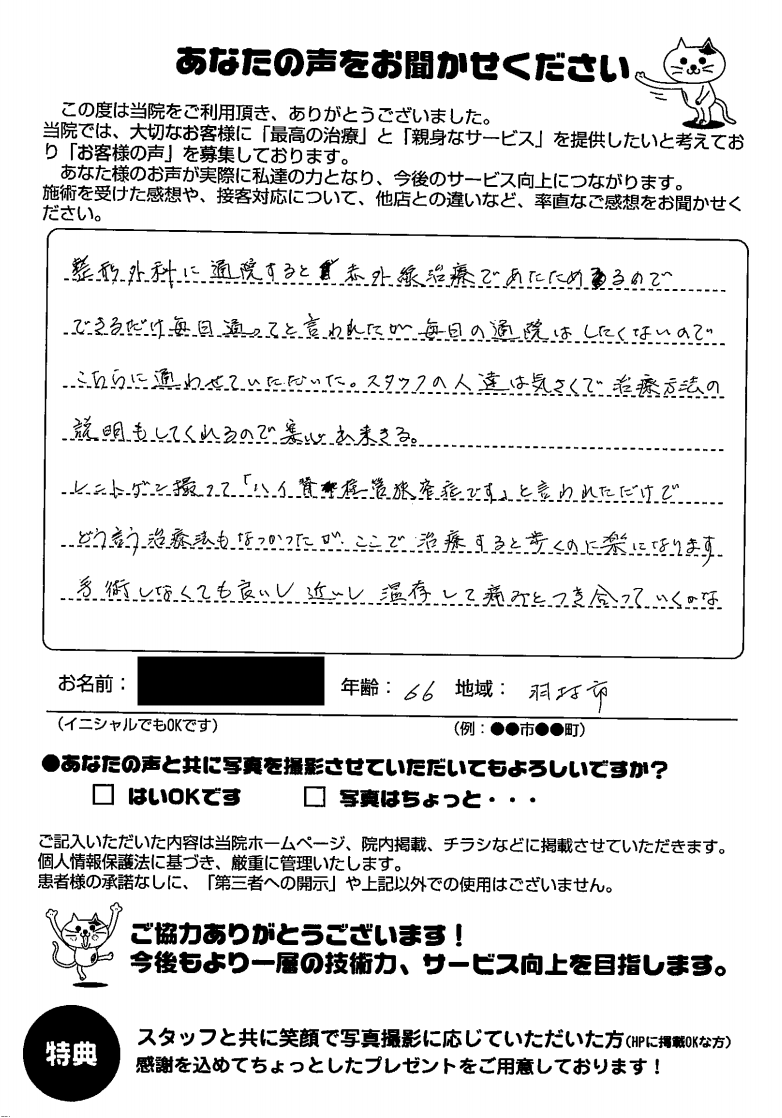 あなたの声をお聞かせください
この度は当院をご利用頂き、ありがとうございました。
当院では、大切なお客様に「最高の治療」と「親身なサービス」を提供したいと考えてお
り「お客様の声」を募集しております。
あなた様のお声が実際に私達の力となり、今後のサービス向上につながります。
施術を受けた感想や、接客対応について、他店との違いなど、率直なご感想をお聞かせく
ださい。
整形外科に通院すると赤外線治療であたためるので
できるだけ毎日通ってと言われたが毎日の通院はしたくないので
こちらに通わせていただいた。スタッフの人達は気さくで治療方法の
説明もしてくれるので安心出来きる。
レントゲン撮って「ハイ脊柱管狭窄症です」と言われただけで
どう言う治療法もなかったが、ここで治療すると歩くのに楽になります
手術しなくても良いし近いし温存して痛みとつき合っていくのな
お名前：
年齢：66 地域：羽村市
(イニシャルでもOKです)
(例：●●市●●町)
●あなたの声と共に写真を撮影させていただいてもよろしいですか？
□ はいOKです □ 写真はちょっと・・・
ご記入いただいた内容は当院ホームページ、院内掲載、チラシなどに掲載させていただきます。
個人情報保護法に基づき、厳重に管理いたします。
患者様の承諾なしに、「第三者への開示」や上記以外での使用はございません。
ご協力ありがとうございます！
今後もより一層の技術力、サービス向上を目指します。
特典
スタッフと共に笑顔で写真撮影に応じていただいた方(HPに掲載OKな方)
感謝を込めてちょっとしたプレゼントをご用意しております！